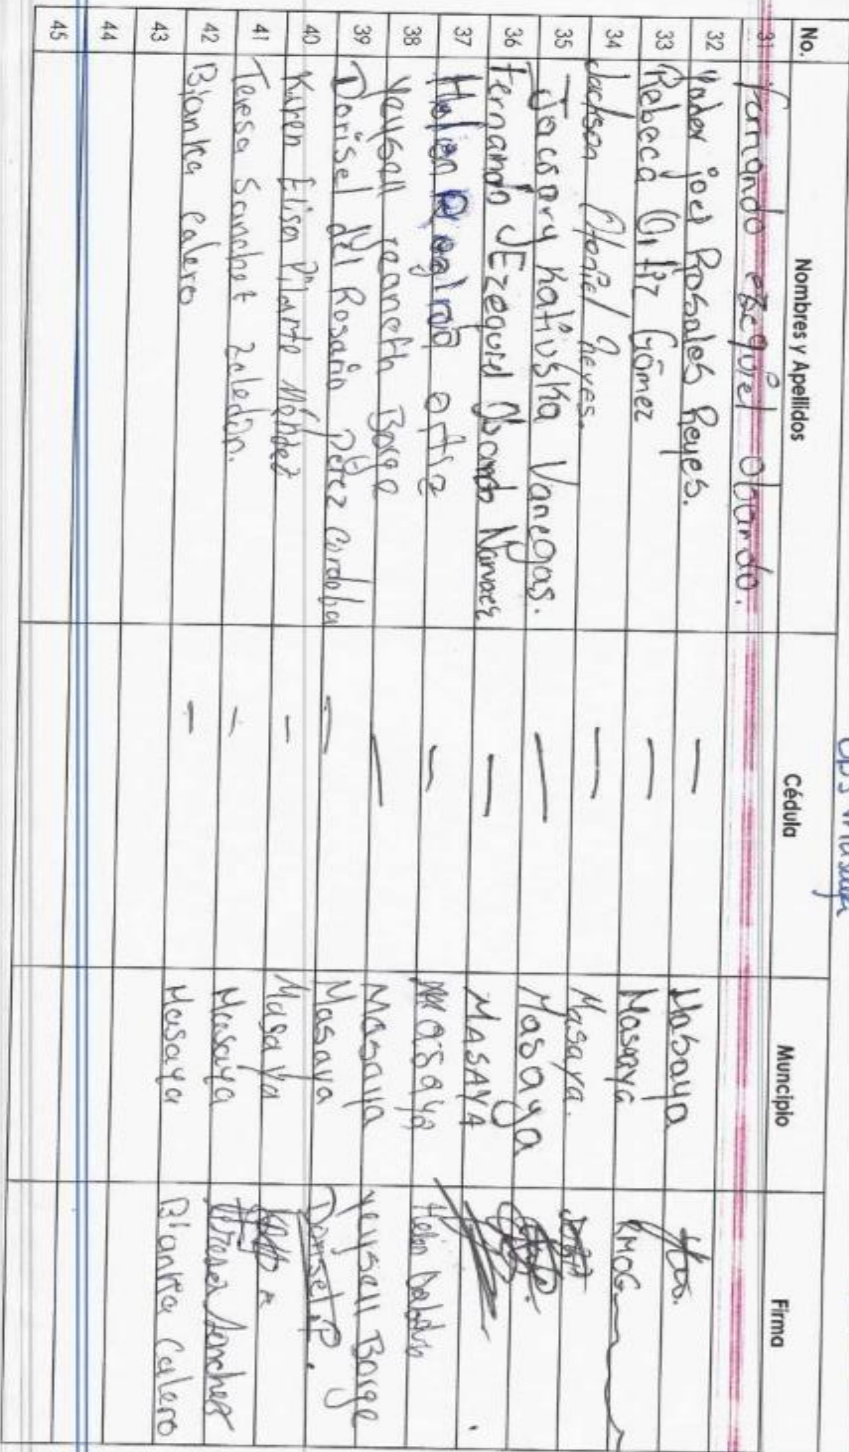 ODS Masaya
No. Nombres y Apellidos Cédula Muncipio Firma
31 fernando ezequiel obando.
32 Yader joel Rosales Reyes. — Masaya
33 Rebeca Ortiz Gómez — Masaya RMOG
34 Jackson Otoniel Reyes. — Masaya.
35 Jocsary Katiuska Vanegas. — Masaya
36 Fernando JEzequiel Obando Narvaez — MASAYA
37 Helen ortiz — Masaya Helen
38 Yeysell Yeaneth Borge — Masaya Yeysell Borge
39 Dorisel del Rosario Pérez Cordoba — Masaya Dorisel.P.
40 Karen Elisa Pilarte Méndez — Masaya
41 Teresa Sanchez Zeledón. — Masaya Teresa Sanchez
42 Bianka Calero — Masaya Bianka Calero
43
44
45